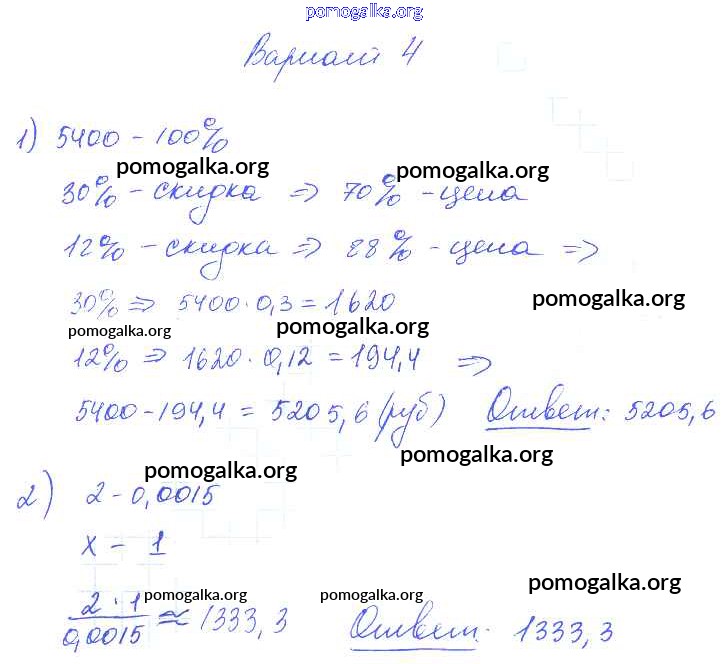 pomogalka.org
Вариант 4
1) 5400 - 100%
pomogalka.org pomogalka.org
30% - скидка => 70% - цена
12% - скидка => 88% - цена =>
30% => 5400 · 0,3 = 1620 pomogalka.org
pomogalka.org pomogalka.org
12% => 1620 · 0,12 = 194,4 =>
5400 - 194,4 = 5205,6 (руб) Ответ: 5205,6
pomogalka.org pomogalka.org
2) 2 - 0,0015
x - 1
pomogalka.org pomogalka.org pomogalka.org
2 · 1
0,0015 ≈ 1333,3 Ответ: 1333,3